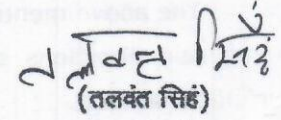 तलवंत सिंह
(तलवंत सिहं)